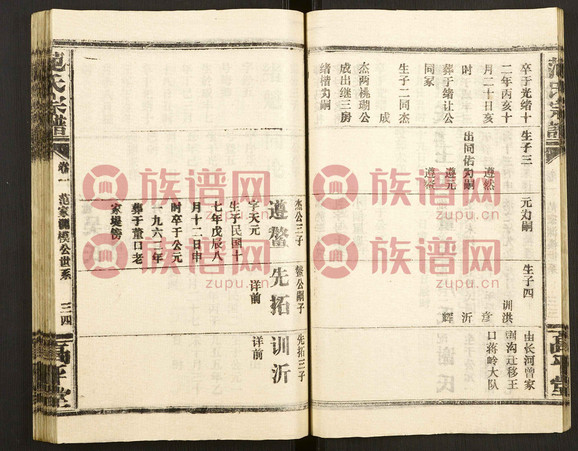 卒于光绪十
二年丙亥十
月二十日亥
时
葬于绪让公
同冢
生子二同杰
成
杰两祧瑚公
成出继三房
绪楷为嗣
生子三
遵然
遵元
遵
元为嗣
出同佑为嗣
生子四
训洪
沂
辉
由长河曾家
沟迁移王
口蒋岭大队
高平堂
范氏宗谱
杰公三子
遵鳌
字天元
生于民国十
七年戊辰八
月十二日申
时卒于公元
一九六二年
葬于董口老
家堤傍
鳌公嗣子
先拓
详前
先拓三子
训沂
详前
范氏宗谱
卷一
模公世系
三四
高平堂
族谱网
zupu.cn
族谱网
zupu.cn
族谱网
zupu.cn
族谱网
zupu.cn